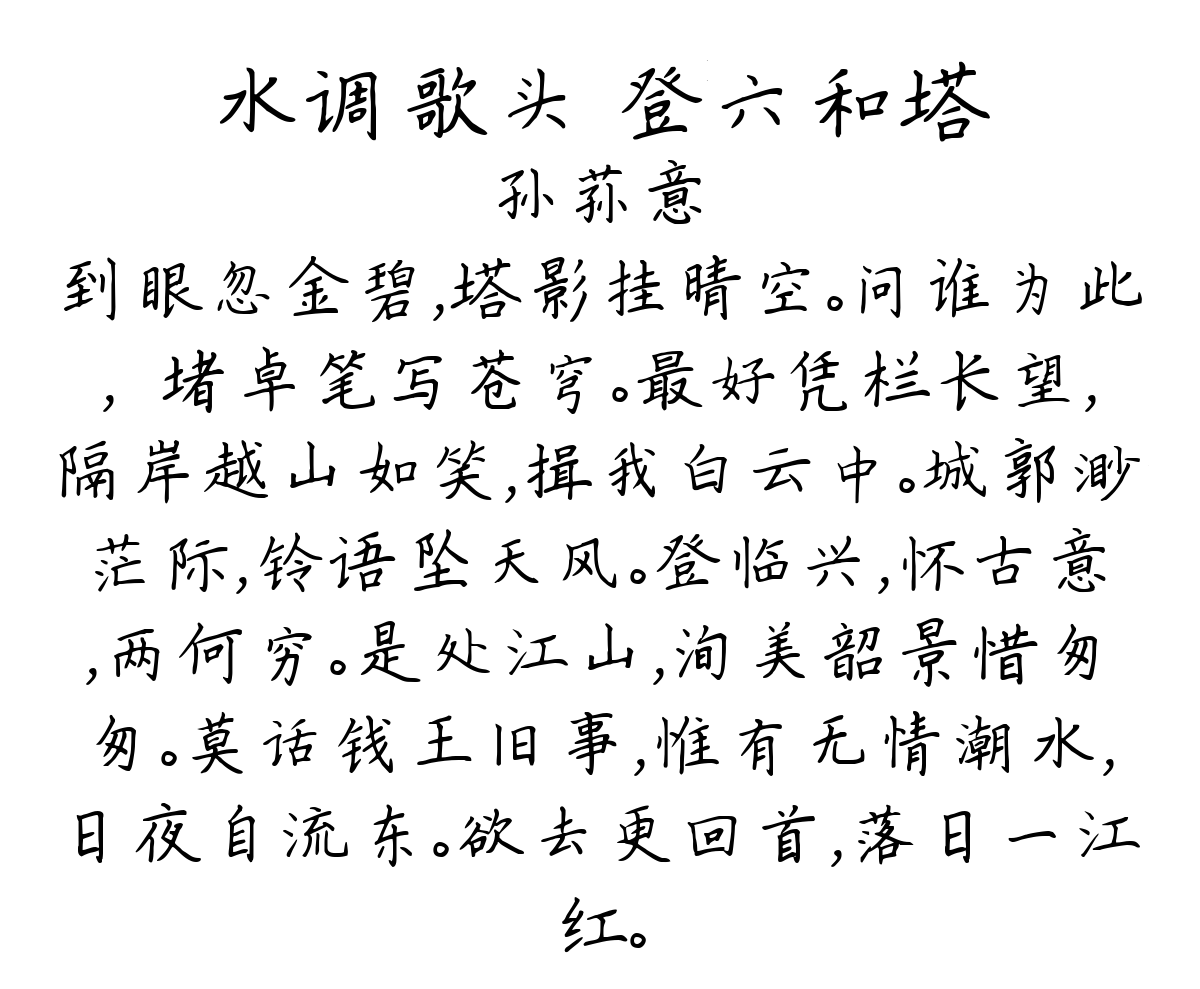 水调歌头 登六和塔
孙荪意
到眼忽金碧,塔影挂晴空。问谁为此
，堵卓笔写苍穹。最好凭栏长望,
隔岸越山如笑,揖我白云中。城郭渺
茫际,铃语坠天风。登临兴,怀古意
,两何穷。是处江山,洵美韶景惜匆
匆。莫话钱王旧事,惟有无情潮水,
日夜自流东。欲去更回首,落日一江
红。